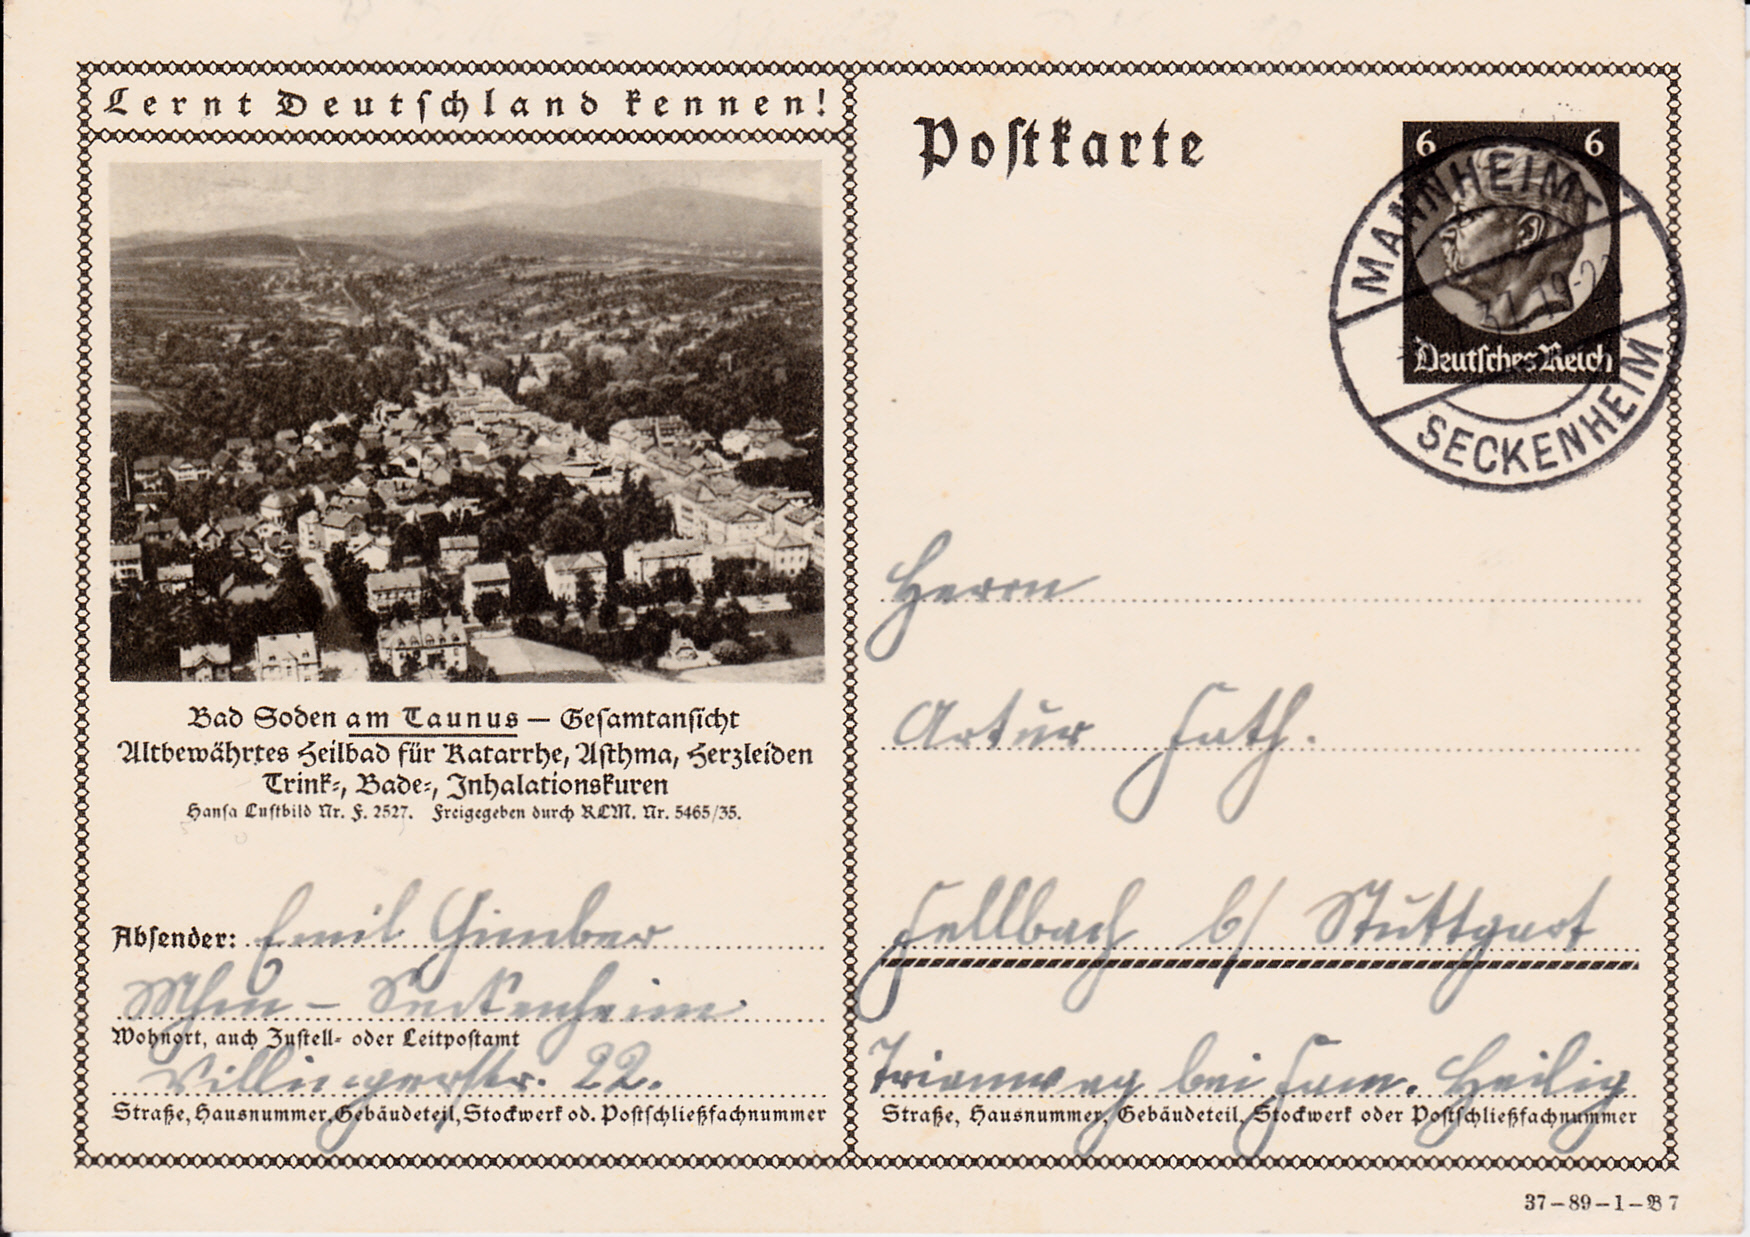 Lernt Deutschland kennen!
Bad Soden am Taunus — Gesamtansicht
Altbewährtes Heilbad für Katarrhe, Asthma, Herzleiden
Trink-, Bade-, Inhalationskuren
Hansa Luftbild Nr. F. 2527. Freigegeben durch RLM. Nr. 5465/35.
Absender: Emil Gimber
Mhm – Seckenheim
Wohnort, auch Zustell- oder Leitpostamt
Villingerstr. 22.
Straße, Hausnummer, Gebäudeteil, Stockwerk od. Postschließfachnummer
Postkarte
6 6
Deutsches Reich
MANNHEIM
SECKENHEIM
Herrn
Artur Fath.
Fellbach b/ Stuttgart
bei Fam. Heilig
Straße, Hausnummer, Gebäudeteil, Stockwerk oder Postschließfachnummer
37–89–1–B 7